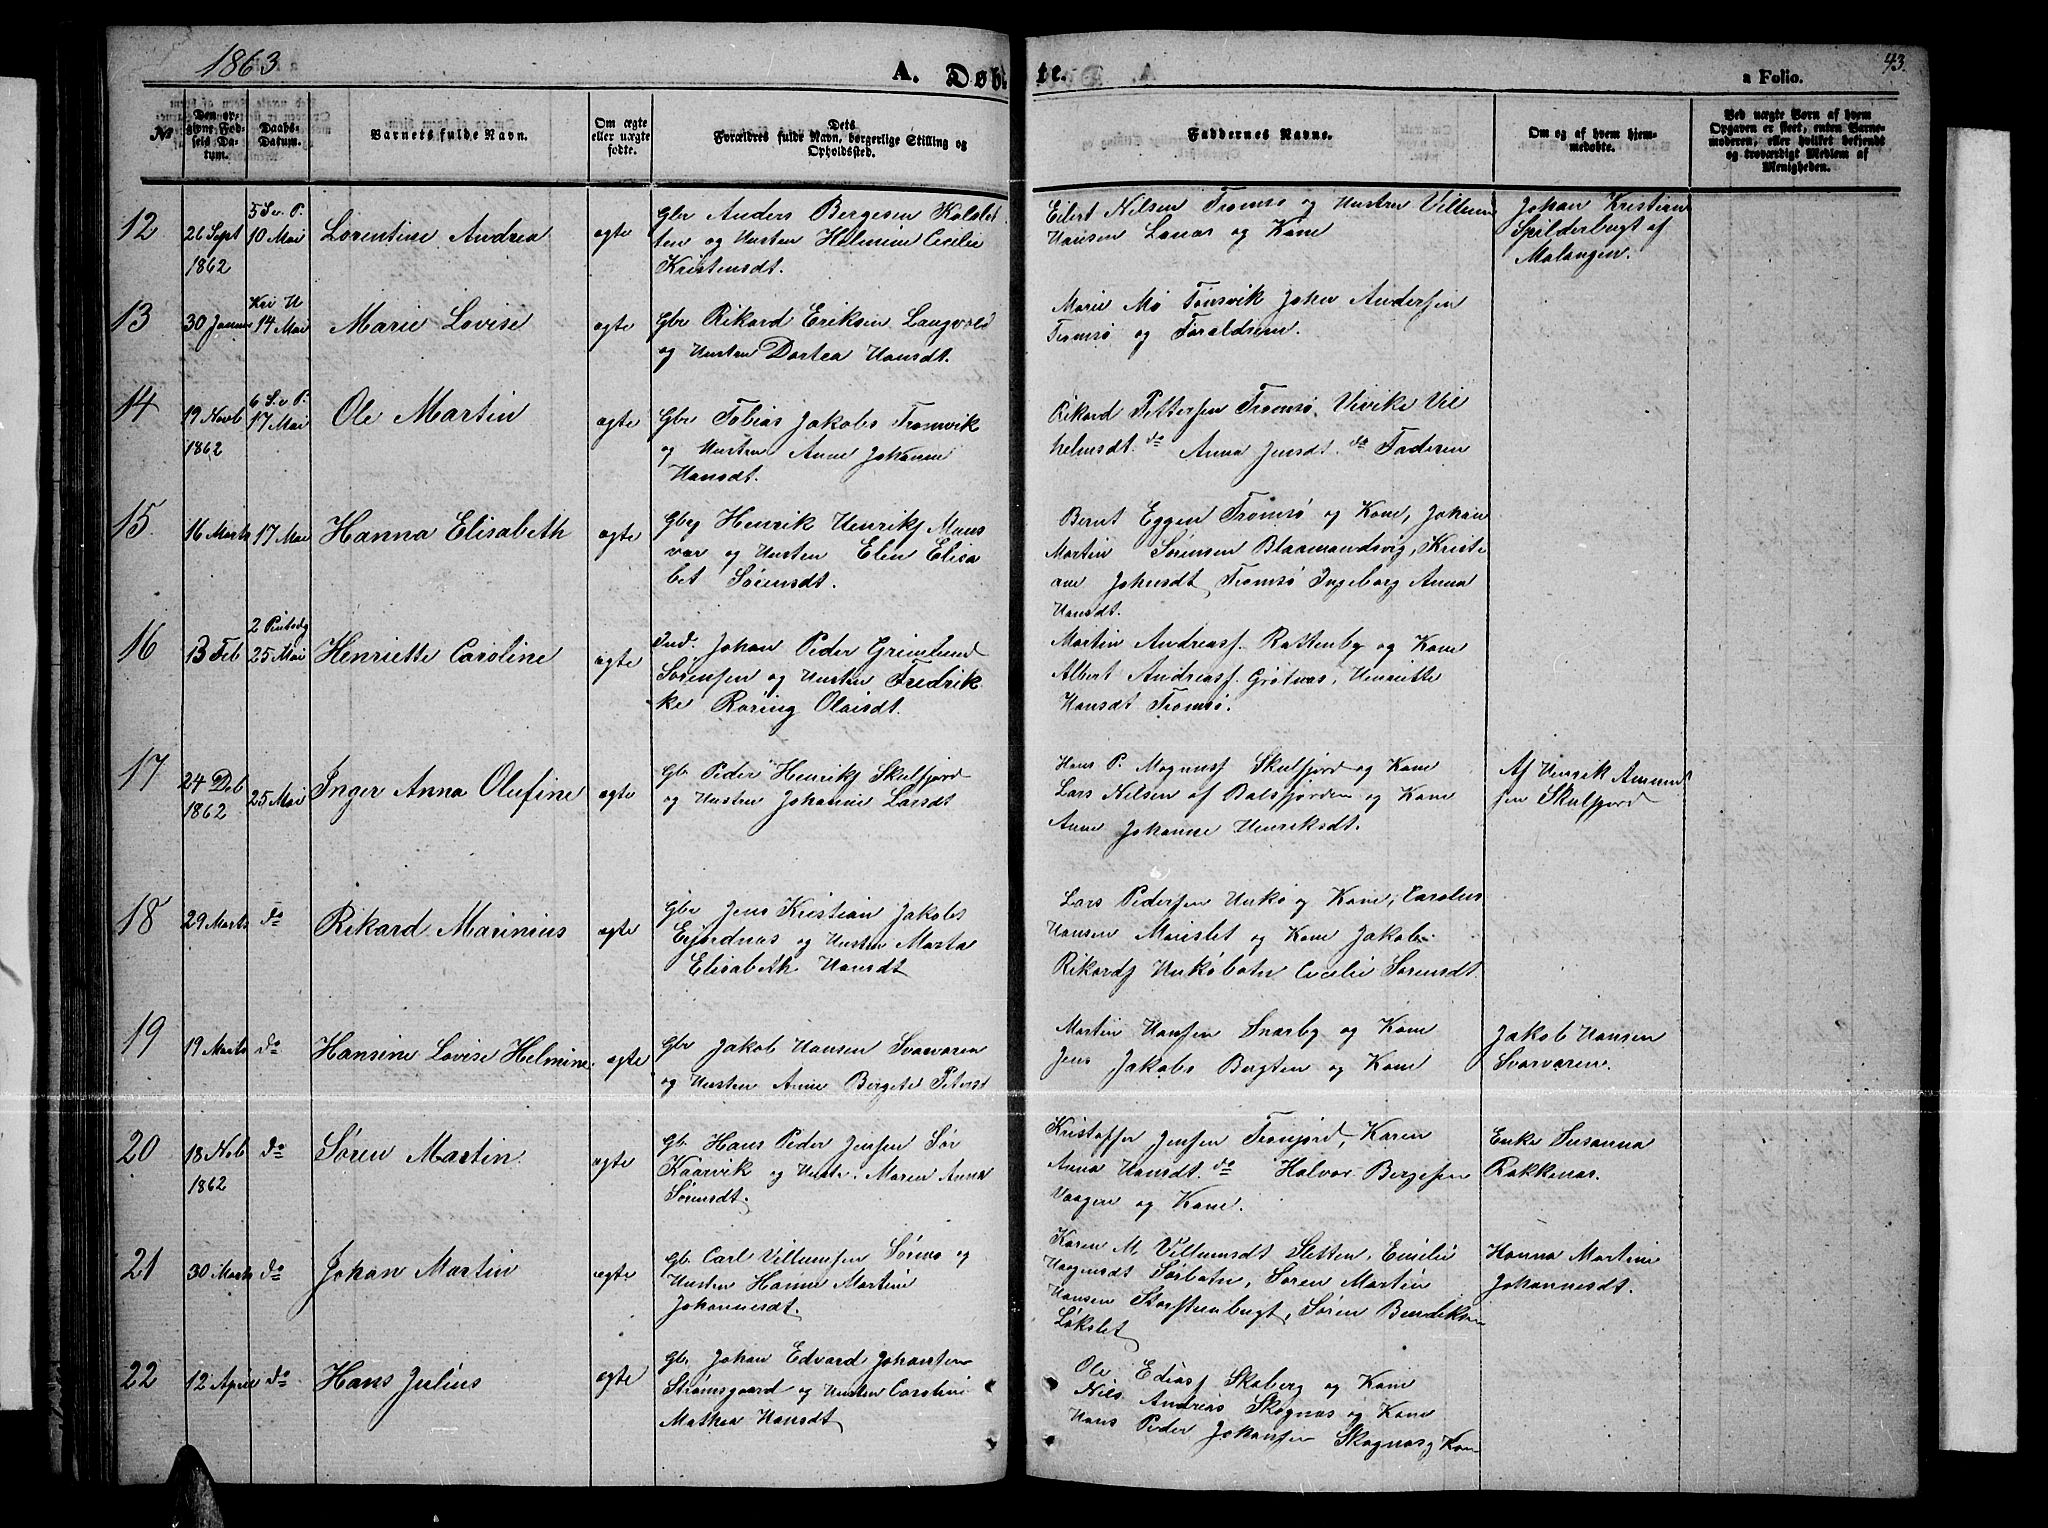 1863
A. Døbte.
43.
a Folio.
No
Den opgivne Fødsels Datum.
Daabs-Datum.
Barnets fulde Navn.
Om ægte eller uægte fødte.
Dets Forældres fulde Navn, borgerlige Stilling og Opholdssted.
Faddernes Navne.
Om og af hvem hjemmedøbte.
Ved uægte Børn af hvem Opgaven er skeet, enten Barnemoderen, eller hvilket bekjendt og troværdigt Medlem af Menigheden.
12
26 Sept
1862
5 S. e. P.
10 Mai
Lorentine Andrea
ægte
Gbr Anders Bergesen Kolslet
ten og Hustru Helmine Cecilie
Kristensdt.
Eilert Nilsen Tromsø og Hustru Villum
Hansen Lanæs og Kone
Johan Kristian
Spilderbugt af
Malangen.
13
30 Januar
Kri H
14 Mai
Marie Lovise
ægte
Gbr Rikard Eriksen Langvold
og Hustru Dortea Hansdt.
Marie Mø Tønsvik Johan Andersen
Tromsø og Forældrene.
14
19 Novb
1862
6 S. e P.
17 Mai
Ole Martin
ægte
Gbr Tobias Jakobs Tromvik
og Hustru Anne Johanne
Hansdt.
Rikard Pettersen Tromsø. Vivike Vil
helmsdt. do Anna Jensdt. do Faderen
15.
16 Marts
17 Mai
Hanna Elisabeth
ægte
Gbr Henrik Henriks Maas
vær og Hustru Elen Elisa
bet Sørensdt.
Bernt Eggen Tromsø og Kone, Johan
Martin Sørensen Blaamandsvig, Kristi
ane Johnsdt Tromsø Ingeborg Anna
Hansdt.
16
13 Feb
2 Pintsdg
25 Mai
Henriette Caroline
ægte
Ind. Johan Peder Grønlund
Sørensen og Hustru Fredrik
ke Roring Olaisdt.
Martin Andreass. Rottenby og Kone
Albert Andreass. Grøtnæs, Henriette
Hansdt Tromsø.
17
24 Deb
1862
25 Mai
Inger Anna Olufine
ægte
Gb. Peder Henriks Skulfjord
og Hustru Johanne Larsdt.
Hans P. Magnuss Skulfjord og Kone
Lars Nilsen af Balsfjorden og Kone
Anne Johanne Henriksdt.
Af Henrik Amund
sen Skulfjord
18
29 Marts
do
Rikard Marinius
ægte
Gbr Jens Kristian Jakobs
Ejordnæs og Hustru Marta
Elisabeth Hansdt
Lars Pedersen Hukø og Kone, Carolus
Hansen Mouslet og Kone Jakob
Rikards Hukøbotn Cecilie Sørensdt
19
19 Marts
do
Hansine Lovise Helmine.
ægte
Gbr Jakob Hansen Svarvaren
og Hustru Anne Bergete Petersdt
Martin Hansen Snarby og Kone
Jens Jakobs Bergten og Kone
Jakob Hansen
Svarvaren.
20
18 Nob
1862
do
Søren Martin
ægte
Gb. Hans Peder Jensen Sør
Kaarvik og Hustr. Maren Anna
Sørensdt.
Kristoffer Jensen Tronjord, Karen
Anna Hansdt. do Halvor Bergesen
Vaagen og Kone.
Enke Susanna
Rakkenæs.
21
30 Marts
do
Johan Martin
ægte
Gb. Carl Villumsen Sørnæs og
Hustru Hanna Martine
Johannesdt.
Karen M. Villumsdt Sletten, Emilie
Haagensdt Sørbotn, Søren Martin
Hansen Storstenbugt, Søren Bendiksen
Løkslet
Hanna Martine
Johannesdt.
22
12 April
do
Hans Julius
ægte
Gbr Johan Edvard Johansen
Strømsgaard og Hustru Caroline
Mathea Hansdt
Ole Edias Skaberg og Kone
Nils Andreas Skognæs og Kone
Hans Peder Johansen Skognæs og Kone